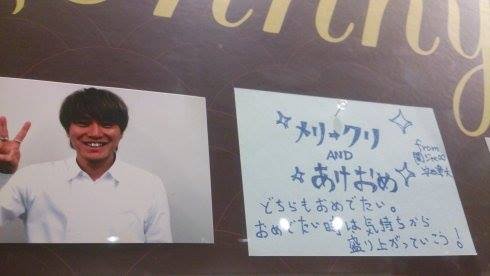 nny
メリクリ
AND
あけおめ
from
関ジャニ∞
安田章大
どちらもおめでたい。
おめでたい時は気持ちから
盛り上がっていこう!